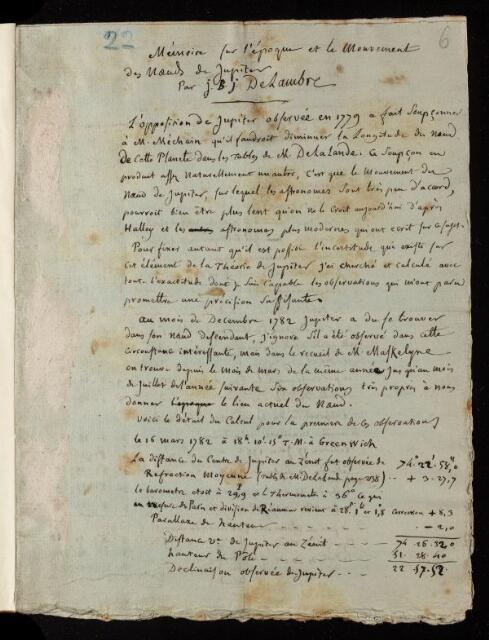 22 6
Mémoire sur l'époque et le Mouvement
des Nœuds de Jupiter
Par J B J DeLambre
L'opposition de Jupiter observée en 1779 a fait soupçonner
à M. Méchain qu'il faudroit diminuer la Longitude du Nœud
de cette Planete dans les Tables de M. DeLaLande. Ce soupçon en
produit assez naturellement un autre, c'est que le Mouvement du
Nœud de Jupiter, sur lequel les astronomes sont très peu d'acord,
pourroit bien être plus lent qu'on ne le croit aujourd'hui d'après
Halley et les astronomes plus modernes qui ont écrit sur ce sujet.
Pour fixer autant qu'il est possible l'incertitude qui existe sur
cet élément de la Théorie de Jupiter j'ai cherché et calculé avec
toute l'exactitude dont je suis capable les observations qui m'ont paru
promettre une précision suffisante.
au mois de Decembre 1782 Jupiter a du se trouver
dans son nœud descendant, j'ignore s'il a été observé dans cette
circonstance intéressante, mais dans le recueil de M. Maskelyne
on trouve depuis le mois de mars de la même année jusqu'au mois
de juillet de l'année suivante six observations très propres à nous
donner le lieu actuel du Nœud.
Voici le détail du Calcul pour la premiere de ces observations
le 16 mars 1782 à 18h 10' 15" T. M. à Greenwich
La distance du Centre de Jupiter au Zénit fut observée de 74° 22' 58",0
Refraction moyenne (tables de M. DeLaLande page 238) + 3. 27,7
le barometre étoit à 29,9 et le Thermometre à 36° ce qui
en mesure de Paris et division de Réaumur revient à 28. et 1,8 correction + 8,3
Parallaxe de hauteur - 2,0
Distance ve de Jupiter au Zénit 74 26 32,0
hauteur du Pôle 51. 28. 40
Declinaison observée de Jupiter 22 57 52